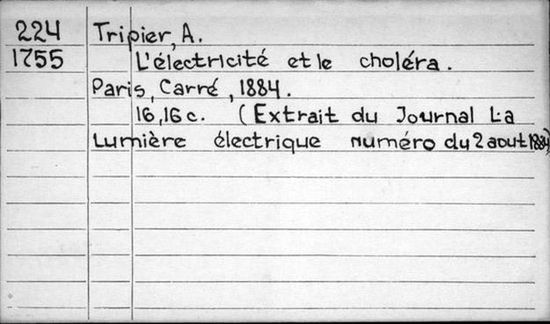 224 Tripier, A.
1755 L'électricité et le choléra.
Paris, Carré, 1884.
16,16 c. (Extrait du Journal La
Lumière électrique numéro du 2 aout 1884)